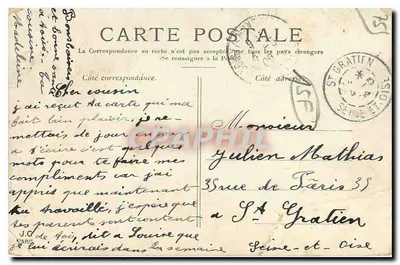 CARTE POSTALE
La Correspondance au recto n'est pas acceptée par tous les pays étrangers
(Se renseigner à la Poste)
Côté correspondance.
Côté adresse.
Cher cousin
j'ai reçut ta carte qui m'a
fait bien plaisir, je re-
mettais de jour en jour
a t'écrire c'est quelques
mots pour te faire mes
compliments car j'ai
appris que maintenant
tu travaillé, j'espère que
tes parents sont content
de toi, dit a Louise que
je lui écrirais dans la semaine
et bons baisers
a tous. ta
cousine
Madeleine
Monsieur
Julien Mathias
35 rue de Paris 35
a St Gratien
Seine-et-Oise
ST GRATIEN
SEINE-ET-OISE
J.C
PARIS
5F